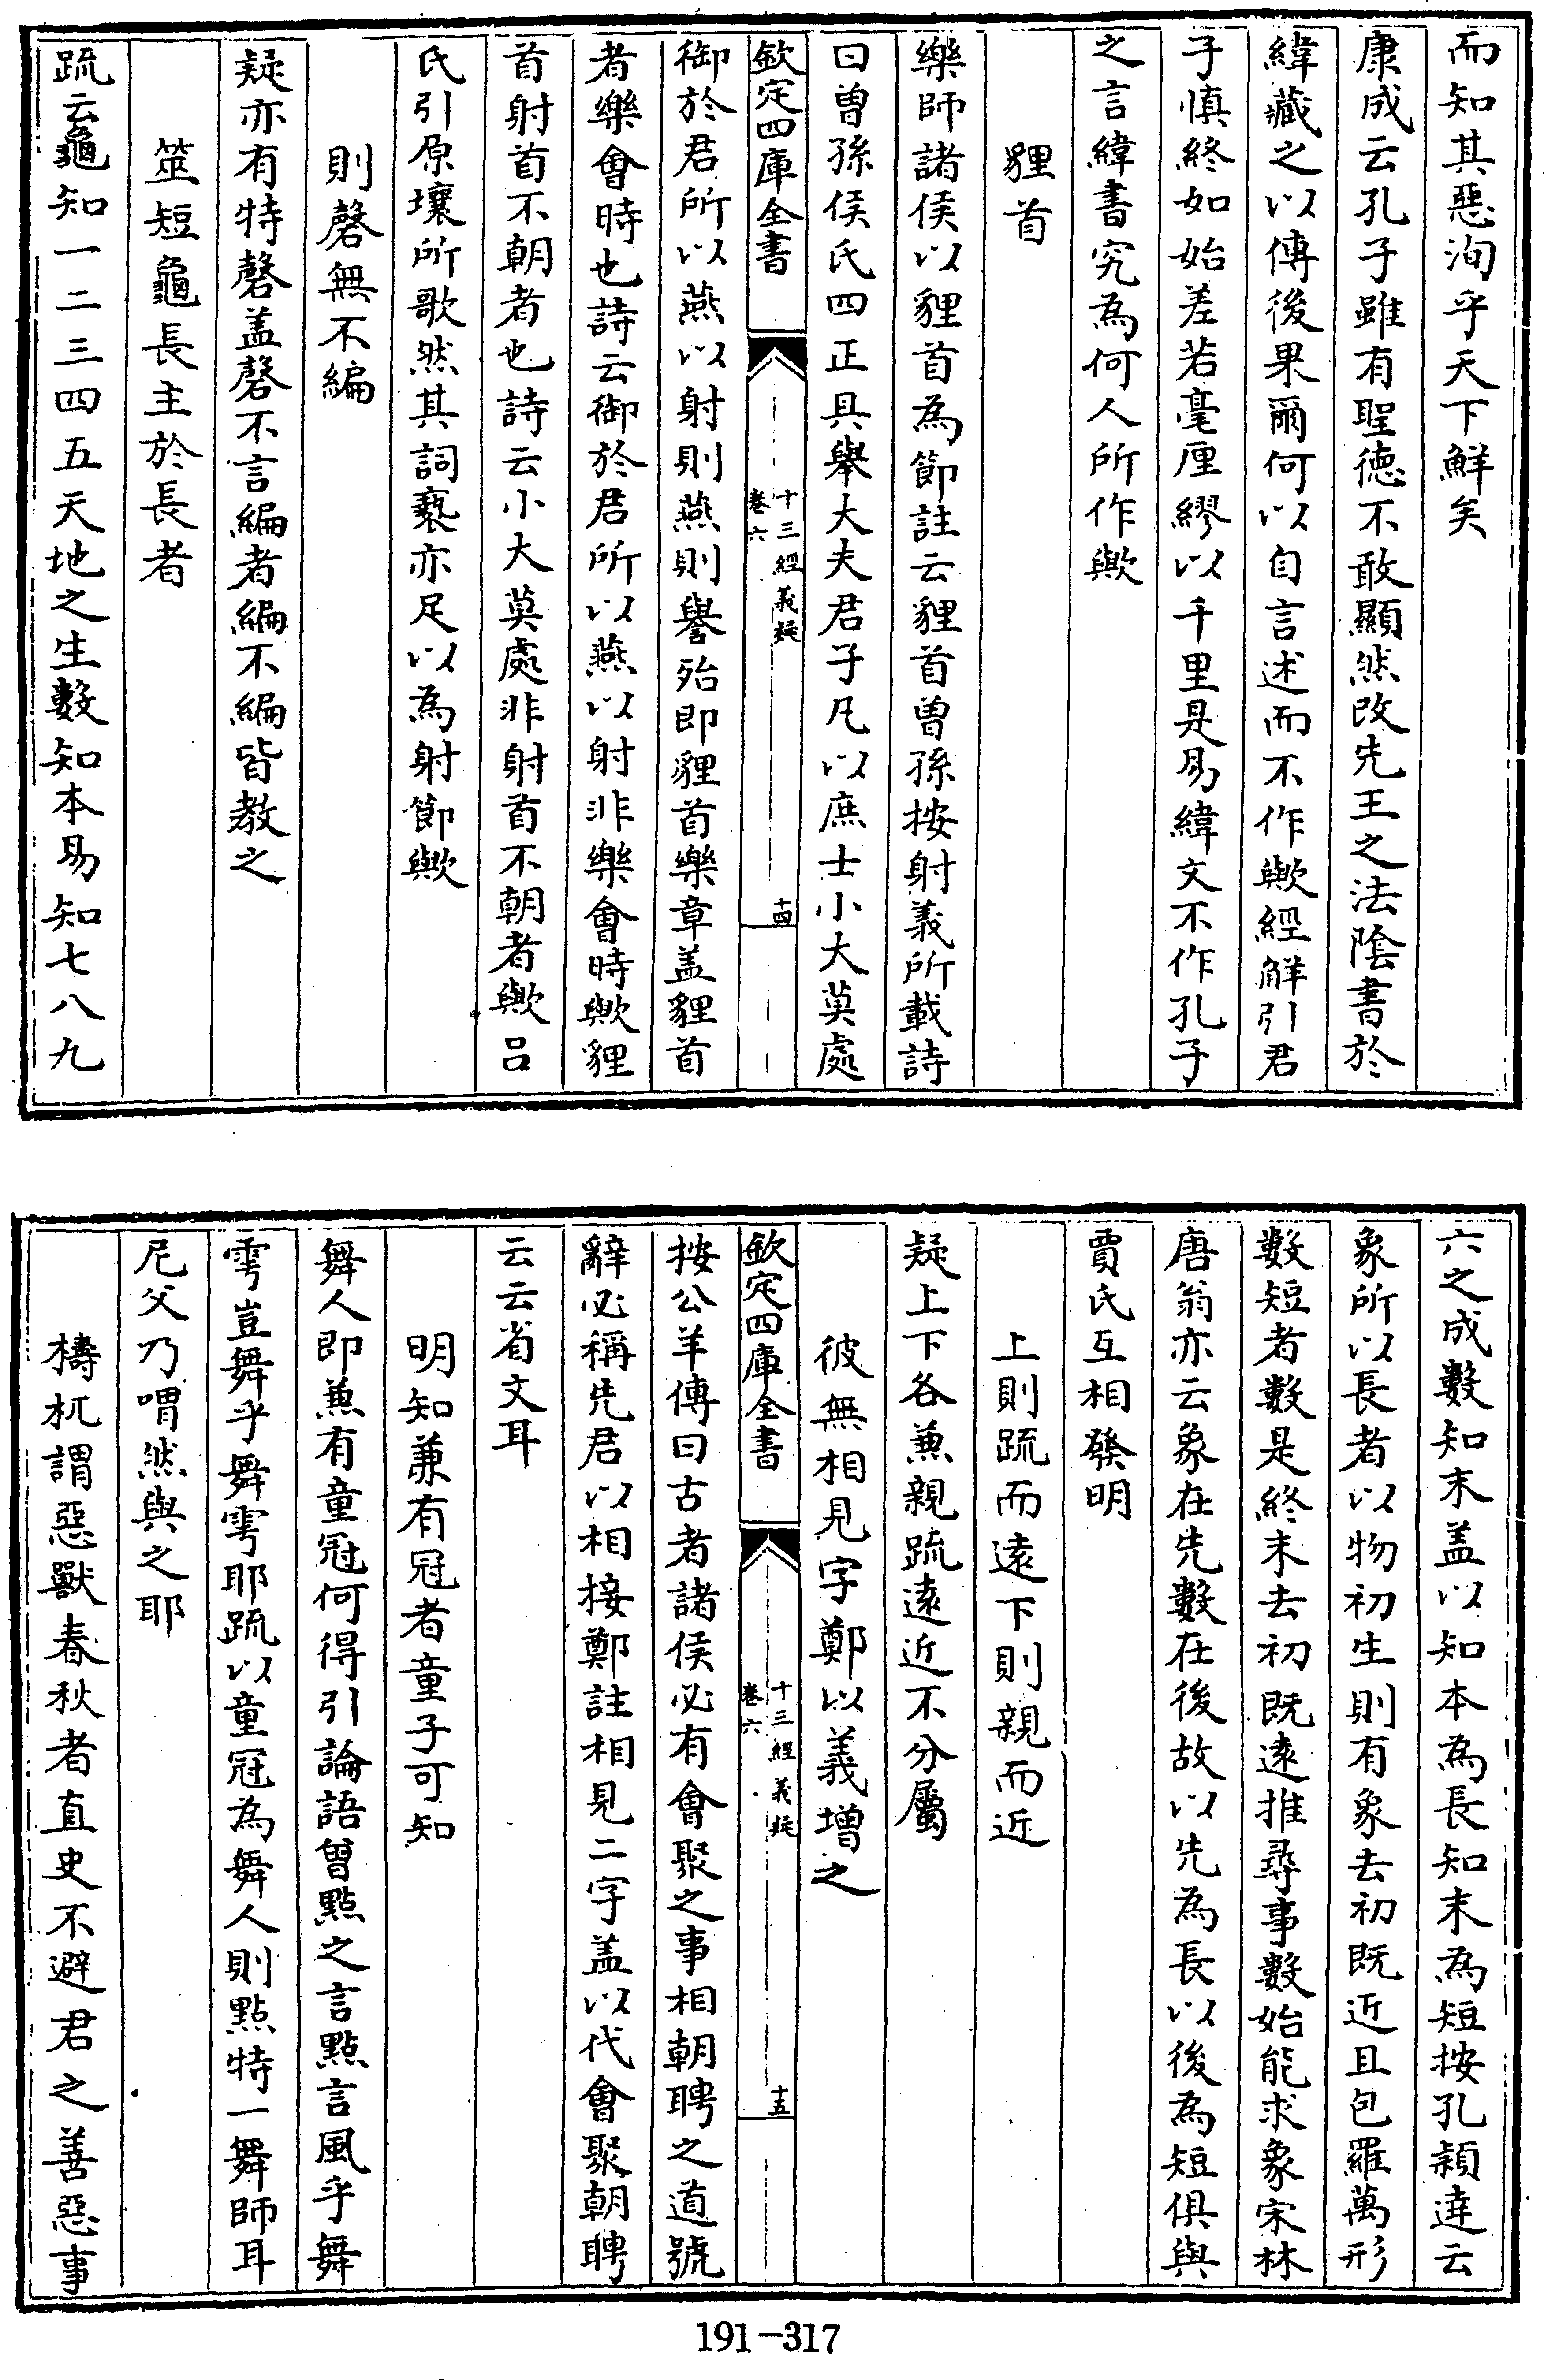 而知其惡洵乎天下鮮矣
康成云孔子雖有聖徳不敢顯然改先王之法陰書於
緯藏之以傳後果爾何以自言述而不作歟經解引君
子慎終如始差若毫厘繆以千里是易緯文不作孔子
之言緯書究為何人所作歟
貍首
樂師諸侯以貍首為節註云貍首曽孫按射義所載詩
曰曽孫侯氏四正具舉大夫君子凡以庶士小大莫處
欽定四庫全書
十三經義疑
卷六
十四
御於君所以燕以射則燕則譽殆即貍首樂章盖貍首
者樂會時也詩云御於君所以燕以射非樂會時歟貍
首射首不朝者也詩云小大莫處非射首不朝者歟吕
氏引原壤所歌然其詞褻亦足以為射節歟
則磬無不編
疑亦有特磬盖磬不言編者編不編皆教之
筮短龜長主於長者
疏云龜知一二三四五天地之生數知本易知七八九
六之成數知末盖以知本為長知末為短按孔穎逹云
象所以長者以物初生則有象去初既近且包羅萬形
數短者數是終末去初既逺推尋事數始能求象宋林
唐翁亦云象在先數在後故以先為長以後為短俱與
賈氏互相發明
上則疏而逺下則親而近
疑上下各兼親疏逺近不分屬
彼無相見字鄭以義增之
欽定四庫全書
十三經義疑
卷六
十五
按公羊傳曰古者諸侯必有會聚之事相朝聘之道號
辭必稱先君以相接鄭註相見二字盖以代會聚朝聘
云云省文耳
明知兼有冠者童子可知
舞人即兼有童冠何得引論語曽點之言點言風乎舞
雩豈舞乎舞雩耶疏以童冠為舞人則點特一舞師耳
尼父乃喟然與之耶
檮杌謂惡獸春秋者直史不避君之善惡事
191-317